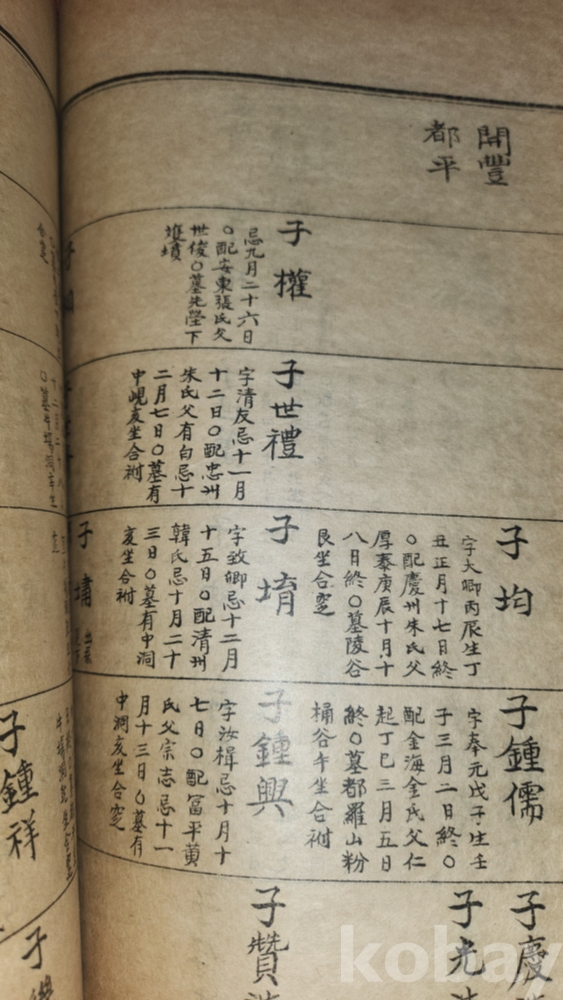 開豐
都平
子權
忌九月二十六日
○配安東張氏父
世俊○墓先塋下
墳
子世禮
字清友忌十一月
十二日○配忠州
朱氏父有白忌十
二月七日○墓有
中峴亥坐合祔
子均
字大卿丙辰生丁
丑正月十七日終
○配慶州朱氏父
厚泰庚辰十月十
八日終○墓陵谷
艮坐合窆
子堉
字致卿忌十二月
十五日○配清州
韓氏忌十月二十
三日○墓有中洞
亥坐合祔
子墉
子鍾儒
字奉元戊子生壬
子三月二日終○
配金海金氏父仁
起丁巳三月五日
終○墓都羅山粉
桶谷午坐合祔
子鍾興
字汝楫忌十月十
七日○配冨平黄
氏父宗志忌十一
月十三日○墓有
中洞亥坐合窆
子鍾祥
子慶
子光
子贊
子
kobay